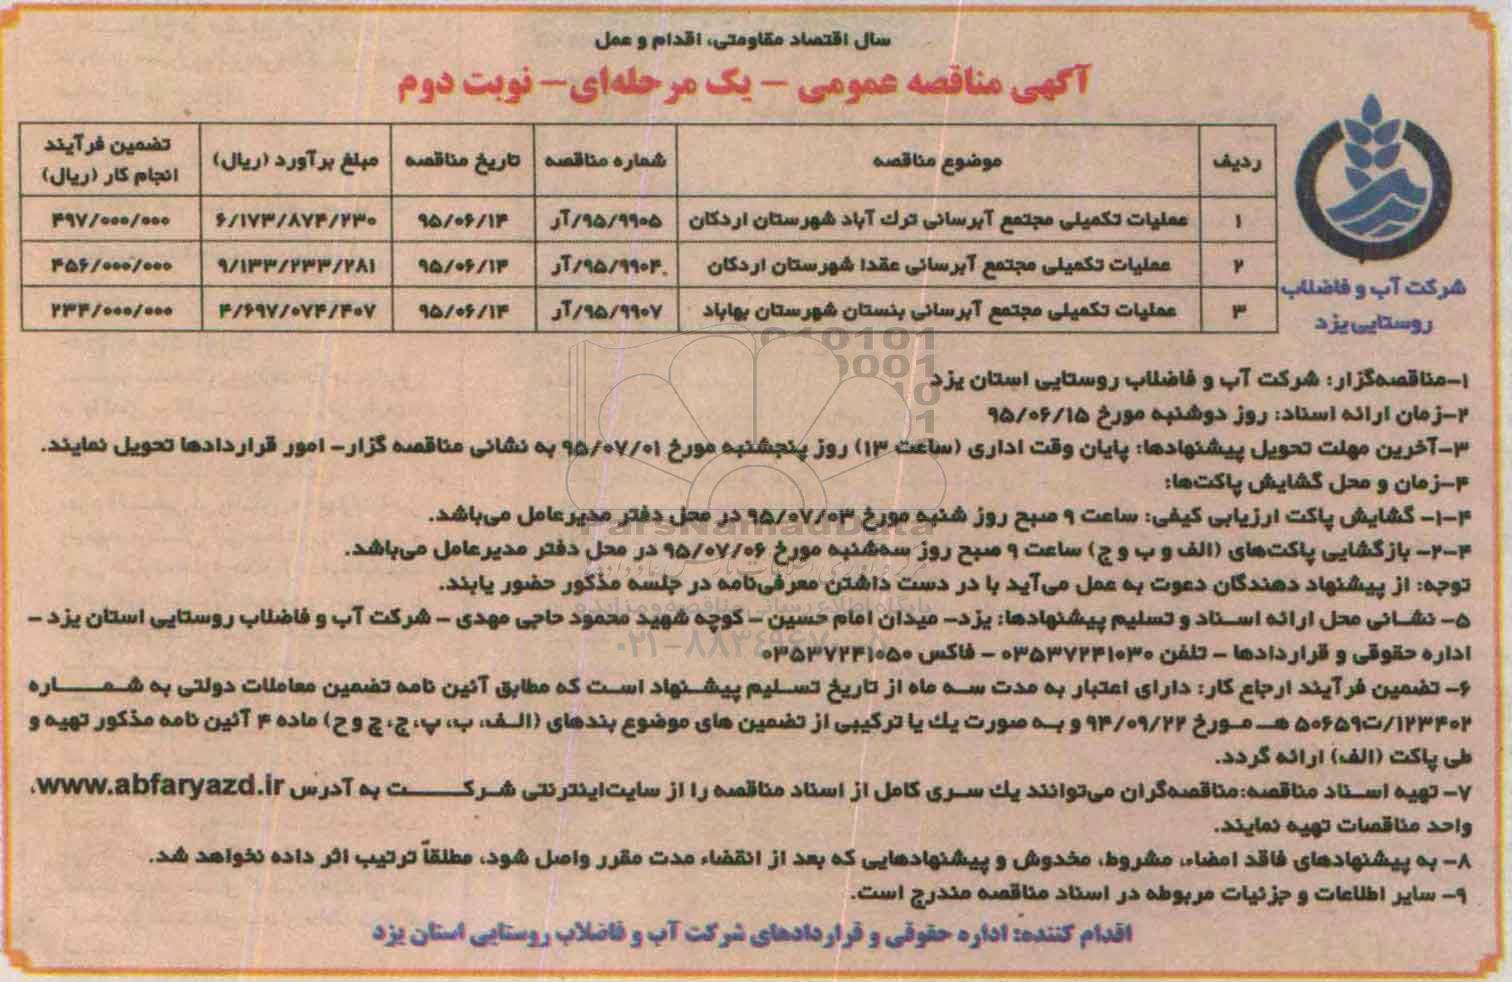 سال اقتصاد مقاومتی، اقدام و عمل
آگهی مناقصه عمومی – یک مرحله‌ای – نوبت دوم
شرکت آب و فاضلاب
روستایی یزد
ردیف موضوع مناقصه شماره مناقصه تاریخ مناقصه مبلغ برآورد (ریال) تضمین فرآیند انجام کار (ریال)
۱ عملیات تکمیلی مجتمع آبرسانی ترک آباد شهرستان اردکان ۹۵/۹۹۰۵/آر ۹۵/۰۶/۱۴ ۶/۱۷۳/۸۷۴/۲۳۰ ۴۹۷/۰۰۰/۰۰۰
۲ عملیات تکمیلی مجتمع آبرسانی عقدا شهرستان اردکان ۹۵/۹۹۰۴/آر ۹۵/۰۶/۱۴ ۹/۱۳۳/۲۳۳/۲۸۱ ۴۵۶/۰۰۰/۰۰۰
۳ عملیات تکمیلی مجتمع آبرسانی بنستان شهرستان بهاباد ۹۵/۹۹۰۷/آر ۹۵/۰۶/۱۴ ۴/۶۹۷/۰۷۴/۴۰۷ ۲۳۴/۰۰۰/۰۰۰
۱–مناقصه‌گزار: شرکت آب و فاضلاب روستایی استان یزد
۲–زمان ارائه اسناد: روز دوشنبه مورخ ۹۵/۰۶/۱۵
۳–آخرین مهلت تحویل پیشنهادها: پایان وقت اداری (ساعت ۱۳) روز پنجشنبه مورخ ۹۵/۰۷/۰۱ به نشانی مناقصه گزار– امور قراردادها تحویل نمایند.
۴–زمان و محل گشایش پاکت‌ها:
۴–۱– گشایش پاکت ارزیابی کیفی: ساعت ۹ صبح روز شنبه مورخ ۹۵/۰۷/۰۳ در محل دفتر مدیرعامل می‌باشد.
۴–۲– بازگشایی پاکت‌های (الف و ب و ج) ساعت ۹ صبح روز سه‌شنبه مورخ ۹۵/۰۷/۰۶ در محل دفتر مدیرعامل می‌باشد.
توجه: از پیشنهاد دهندگان دعوت به عمل می‌آید با در دست داشتن معرفی‌نامه در جلسه مذکور حضور یابند.
۵– نشانی محل ارائه اسناد و تسلیم پیشنهادها: یزد– میدان امام حسین – کوچه شهید محمود حاجی مهدی – شرکت آب و فاضلاب روستایی استان یزد –
اداره حقوقی و قراردادها – تلفن ۰۳۵۳۷۲۴۱۰۳۰ – فاکس ۰۳۵۳۷۲۴۱۰۵۰
۶– تضمین فرآیند ارجاع کار: دارای اعتبار به مدت سه ماه از تاریخ تسلیم پیشنهاد است که مطابق آئین نامه تضمین معاملات دولتی به شماره
۱۲۳۴۰۲/ت۵۰۶۵۹ هـ مورخ ۹۴/۰۹/۲۲ و به صورت یک یا ترکیبی از تضمین های موضوع بندهای (الف، ب، پ، ج، چ و ح) ماده ۴ آئین نامه مذکور تهیه و
طی پاکت (الف) ارائه گردد.
۷– تهیه اسناد مناقصه:مناقصه‌گران می‌توانند یک سری کامل از اسناد مناقصه را از سایت‌اینترنتی شرکت به آدرس www.abfaryazd.ir،
واحد مناقصات تهیه نمایند.
۸– به پیشنهادهای فاقد امضاء، مشروط، مخدوش و پیشنهادهایی که بعد از انقضاء مدت مقرر واصل شود، مطلقاً ترتیب اثر داده نخواهد شد.
۹– سایر اطلاعات و جزئیات مربوطه در اسناد مناقصه مندرج است.
اقدام کننده: اداره حقوقی و قراردادهای شرکت آب و فاضلاب روستایی استان یزد
ParsNamadData
پایگاه اطلاع رسانی مناقصه و مزایده